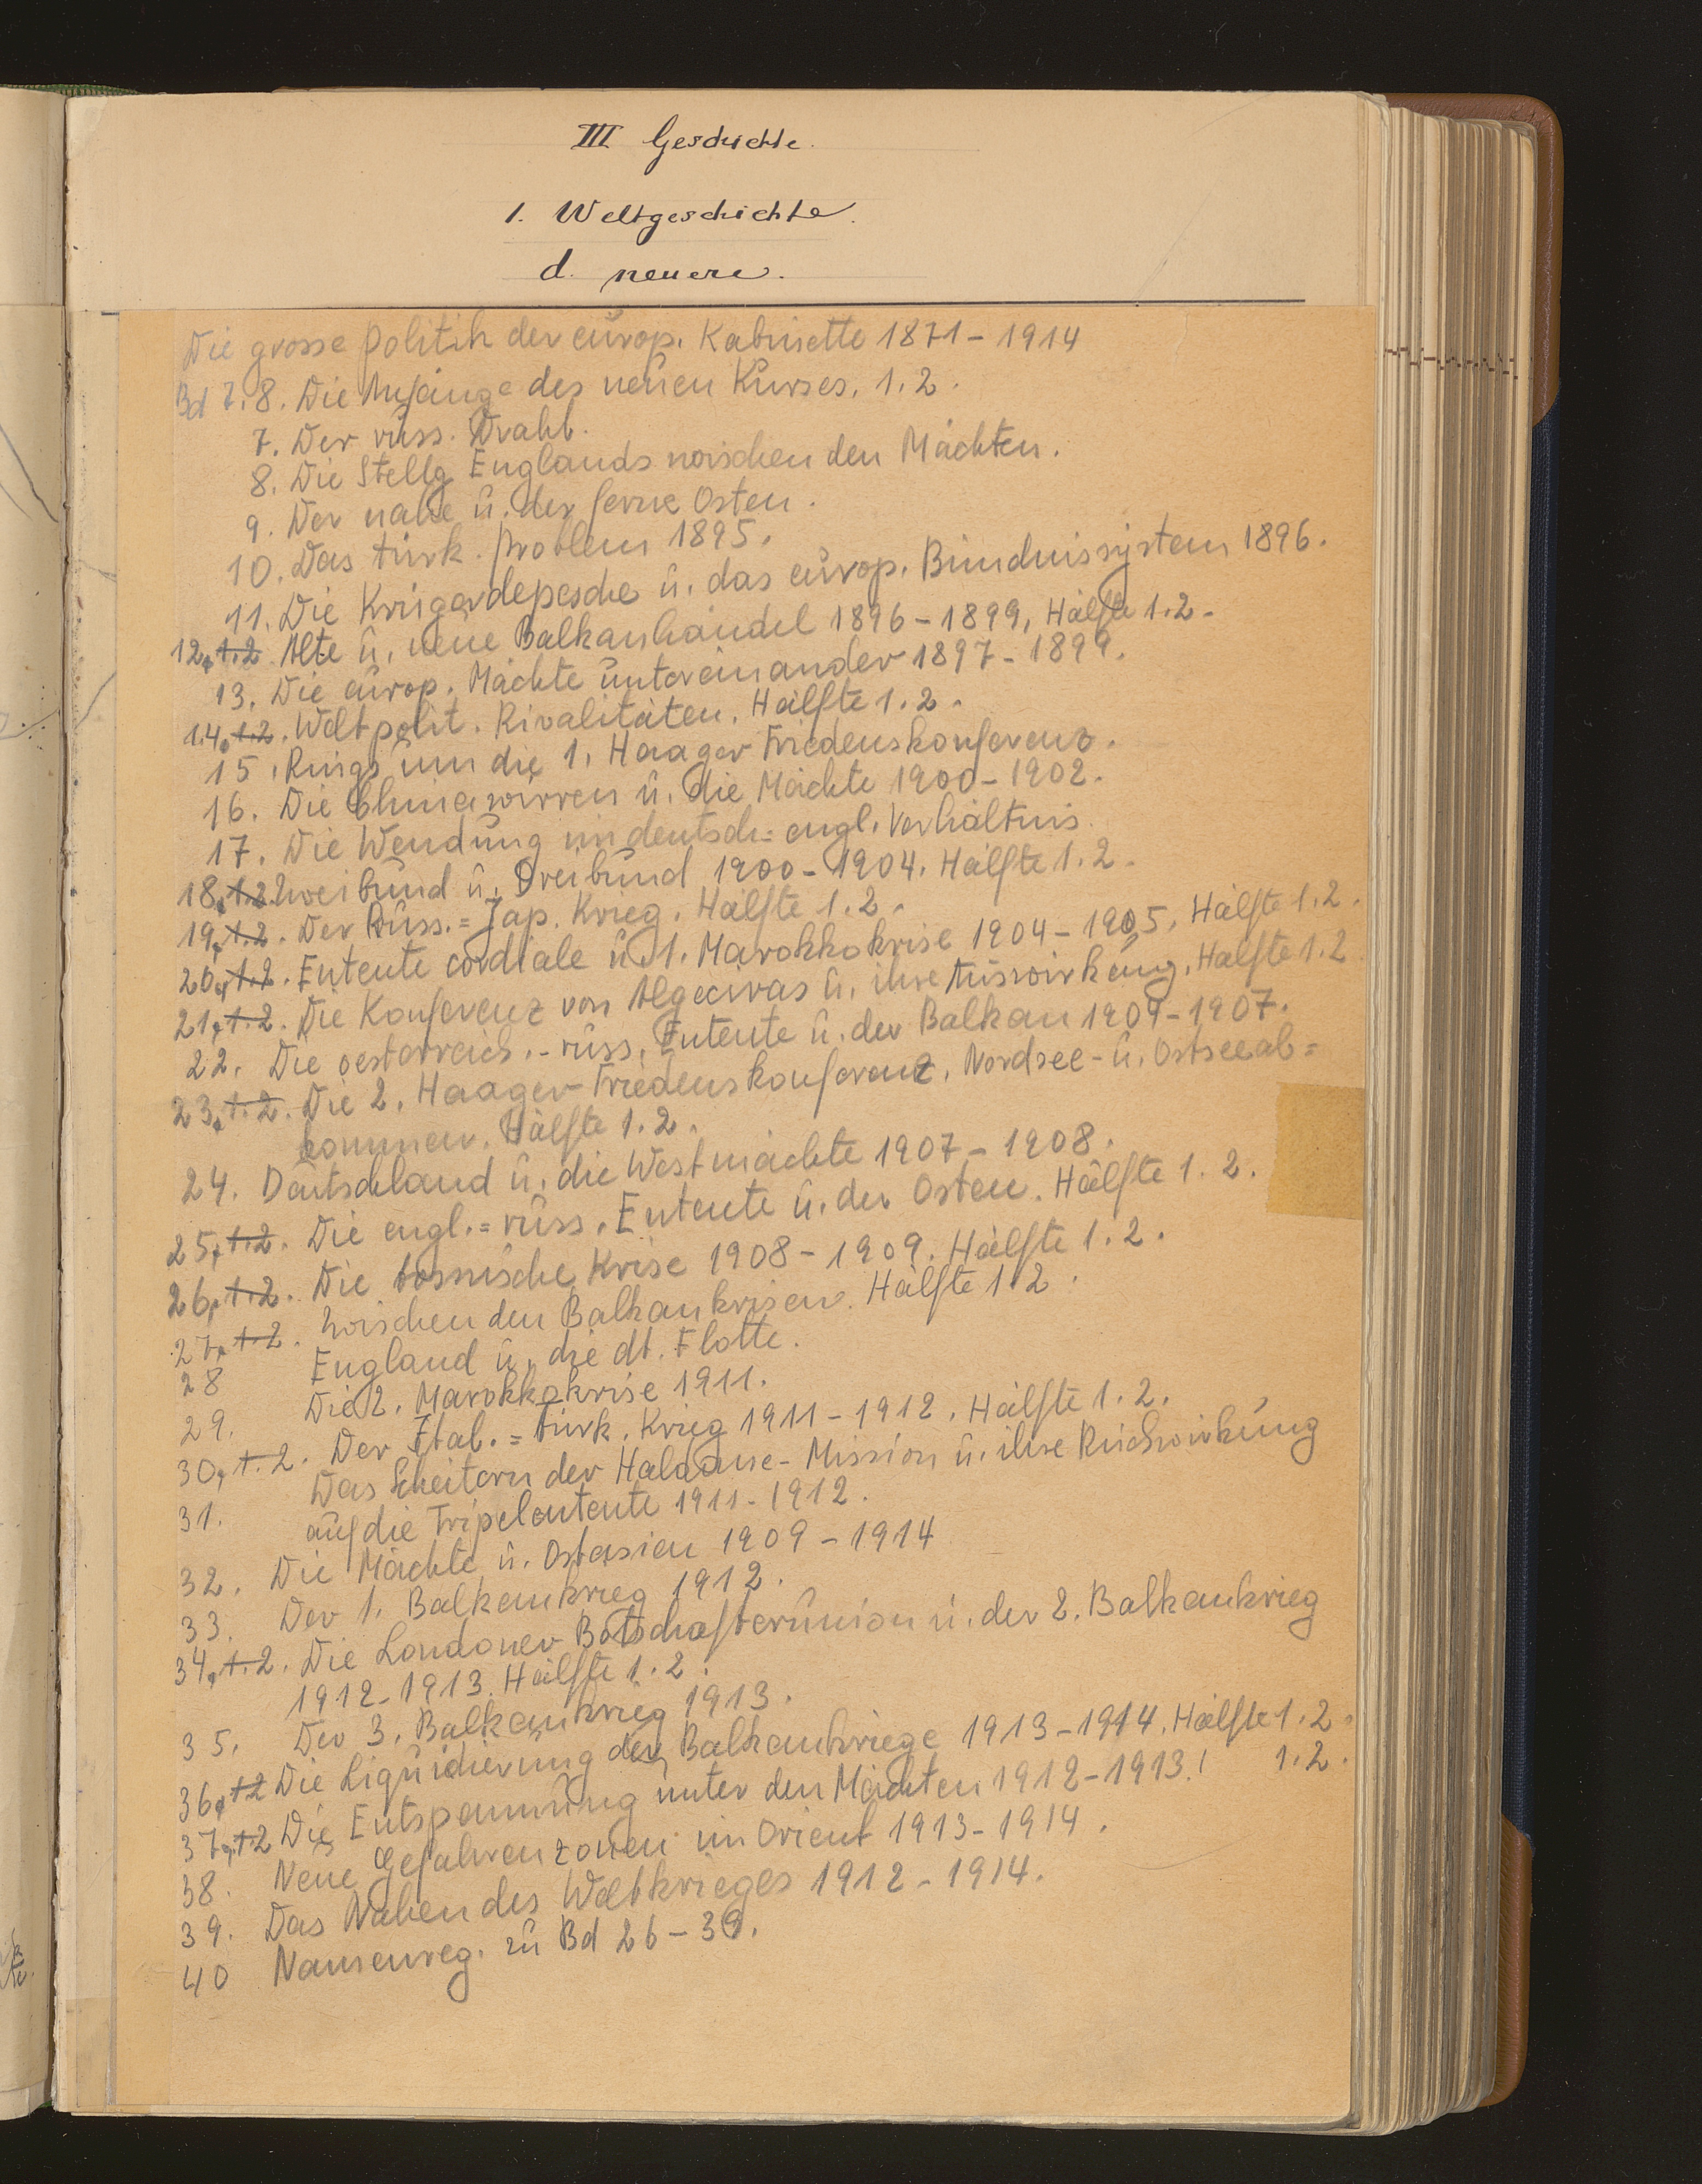 III Geschichte.
1. Weltgeschichte.
d. neuere.
Die grosse Politik der europ. Kabinette 1871-1914
Bd 7.8. Die Anfänge des neuen Kurses. 1.2.
7. Der russ. Draht.
8. Die Stellg Englands zwischen den Mächten.
9. Der nahe u. der ferne Osten.
10. Das türk. Problem 1895.
11. Die Krügerdepesche u. das europ. Bündnissystem 1896.
12, 1.2. Alte u. neue Balkanhändel 1896-1899, Hälfte 1.2.
13. Die europ. Mächte untereinander 1897-1899.
14, 1.2. Weltpolit. Rivalitäten. Hälfte 1.2.
15. Rings um die 1. Haager Friedenskonferenz.
16. Die Chinawirren u. die Mächte 1900-1902.
17. Die Wendung im deutsch=engl. Verhältnis.
18, 1.2. Zweibund u. Dreibund 1900-1904. Hälfte 1.2.
19, 1.2. Der Russ.=Jap. Krieg. Hälfte 1.2.
20, 1.2. Entente cordiale u. 1. Marokkokrise 1904-1905. Hälfte 1.2.
21, 1.2. Die Konferenz von Algeciras u. ihre Auswirkung. Hälfte 1.2
22. Die oesterreich.-russ. Entente u. der Balkan 1904-1907.
23, 1.2. Die 2. Haager Friedenskonferenz. Nordsee- u. Ostseeab=
kommen. Hälfte 1.2.
24. Deutschland u. die Westmächte 1907-1908.
25, 1.2. Die engl.=russ. Entente u. der Osten. Hälfte 1.2.
26, 1.2. Die bosnische Krise 1908-1909. Hälfte 1.2.
27, 1.2. Zwischen den Balkankrisen. Hälfte 1.2.
28 England u. die dt. Flotte.
29. Die 2. Marokkokrise 1911.
30, 1.2. Der Ital.=türk. Krieg 1911-1912. Hälfte 1.2.
31. Das Scheitern der Haldane-Mission u. ihre Rückwirkung
auf die Tripelentente 1911-1912.
32. Die Mächte u. Ostasien 1909-1914
33. Der 1. Balkankrieg 1912.
34, 1.2. Die Londoner Botschafterunion u. der 2. Balkankrieg
1912-1913. Hälfte 1.2.
35. Der 3. Balkankrieg 1913.
36, 1.2 Die Liquidierung der Balkankriege 1913-1914. Hälfte 1.2.
37, 1.2 Die Entspannung unter den Mächten 1912-1913. 1.2.
38. Neue Gefahrenzonen im Orient 1913-1914.
39. Das Nahen des Weltkrieges 1912-1914.
40 Namenreg. zu Bd 26-39.